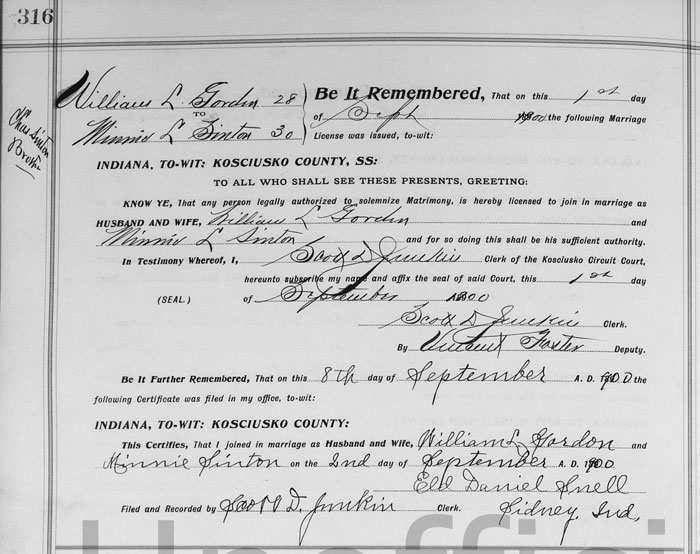 316
William L. Gordin 28
TO
Minnie L Sinton 30
Chas Sinton
Be It Remembered, That on this 1st day
of Sept 1900 the following Marriage
License was issued, to-wit:
INDIANA, TO-WIT: KOSCIUSKO COUNTY, SS:
TO ALL WHO SHALL SEE THESE PRESENTS, GREETING:
KNOW YE, That any person legally authorized to solemnize Matrimony, is hereby licensed to join in marriage as
HUSBAND AND WIFE, William L Gordin and
Minnie L Sinton and for so doing this shall be his sufficient authority.
In Testimony Whereof, I, Scott D Junkin Clerk of the Kosciusko Circuit Court,
hereunto subscribe my name and affix the seal of said Court, this 1st day
(SEAL.) of September 1900
Scott D Junkin Clerk.
By Vincent Foster Deputy.
Be It Further Remembered, That on this 8th day of September A. D. 1900 the
following Certificate was filed in my office, to-wit:
INDIANA, TO-WIT: KOSCIUSKO COUNTY:
This Certifies, That I joined in marriage as Husband and Wife, William L. Gordon and
Minnie Sinton on the 2nd day of September A. D. 1900
Eld Daniel Snell
Filed and Recorded by Scott D. Junkin Clerk. Sidney, Ind,
Unoffici